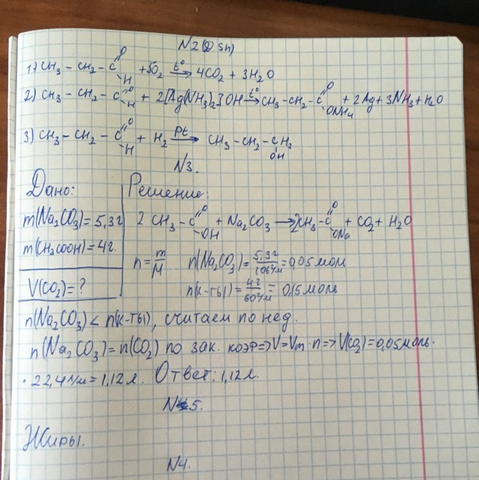 N2
1) CH₃ - CH₂ - C =O -H + 5O₂ →t° 4CO₂ + 3H₂O
2) CH₃ - CH₂ - C =O -H + 2[Ag(NH₃)₂]OH →t° CH₃ - CH₂ - C =O -ONH₄ + 2Ag + 3NH₃ + H₂O
3) CH₃ - CH₂ - C =O -H + H₂ →Pt CH₃ - CH₂ - CH₂ OH
N3.
Дано: Решение:
m(Na₂CO₃) = 5,3г 2 CH₃ - C =O -OH + Na₂CO₃ → 2CH₃ - C =O -ONa + CO₂ + H₂O
m(CH₃COOH) = 4г. n = m/M n(Na₂CO₃) = 5,3г/106г/м = 0,05моль
V(CO₂) = ? n(к-ты) = 4г/60г/м = 0,15моль
n(Na₂CO₃) < n(к-ты), считаем по нед.
n(Na₂CO₃) = n(CO₂) по зак. коэф => V = Vm · n => V(CO₂) = 0,05моль ·
· 22,4л/м = 1,12л. Ответ: 1,12л.
N5.
Жиры.
N4.